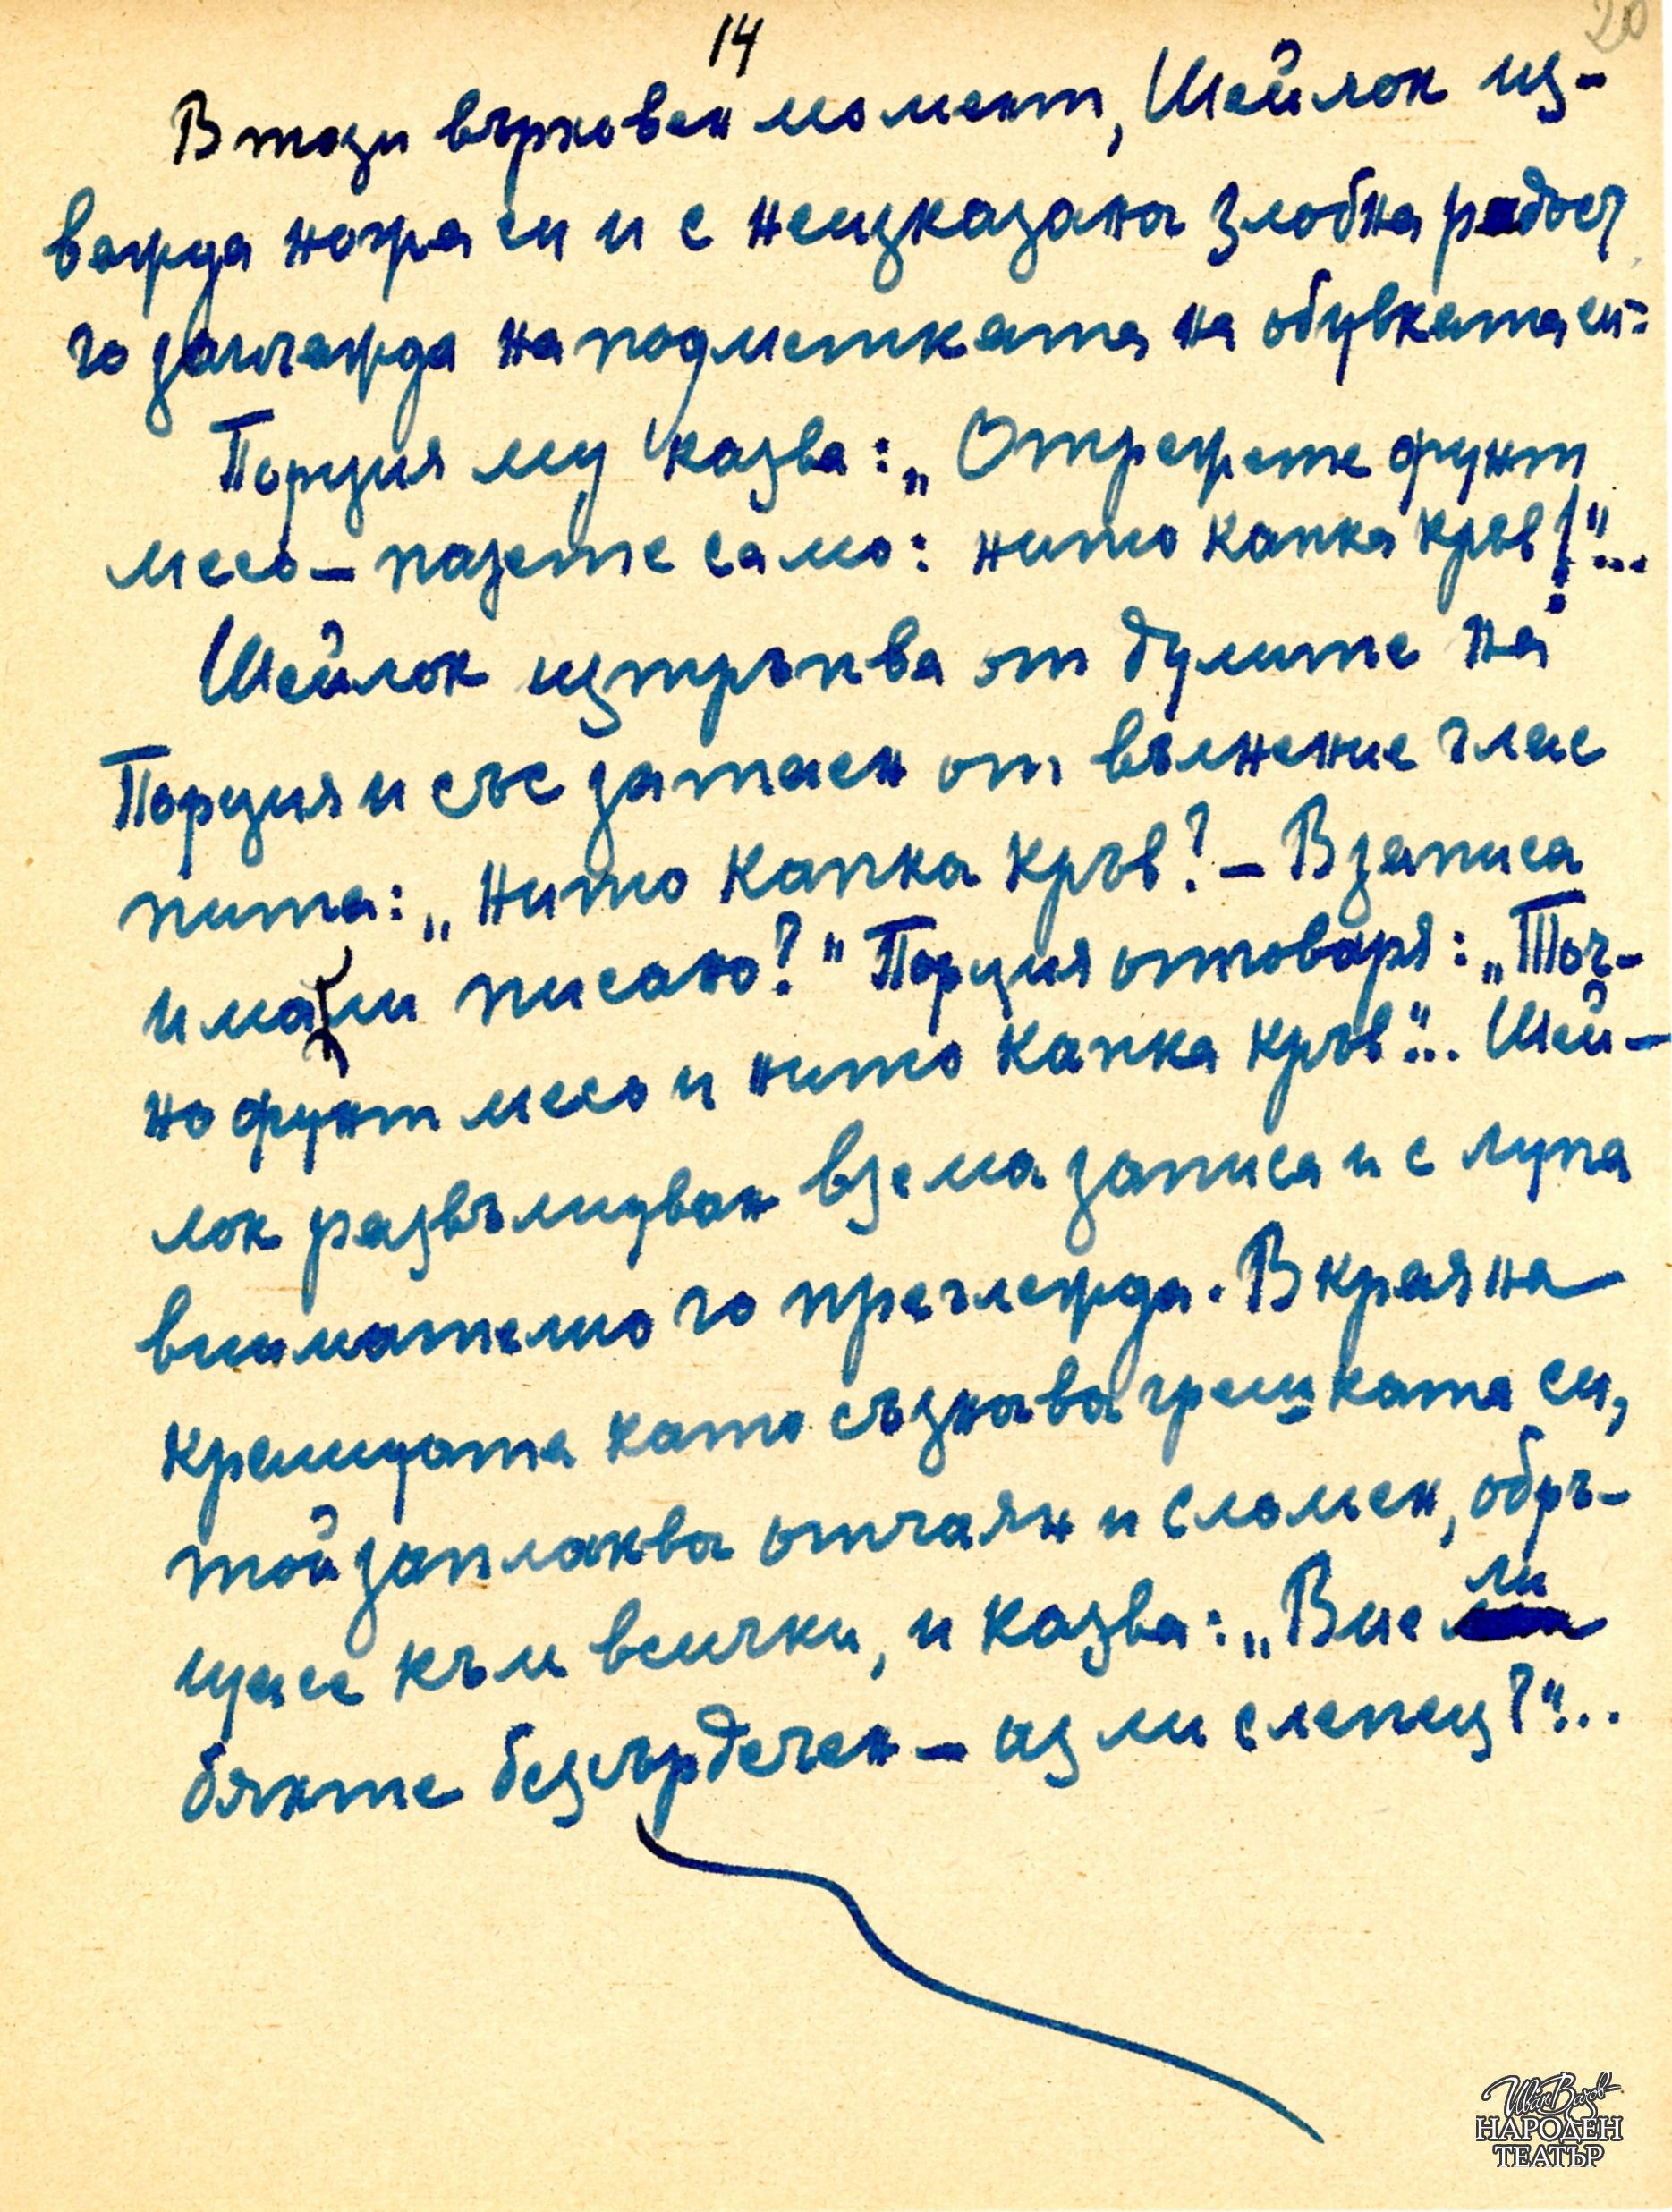 14
20
В този върховен момент, Шейлок из-
важда ножа си и с неизказана злобна радост
го заглажда на подметката на обувката си:
Порция му казва: „Отрежете фунт
месо – пазете само: нито капка кръв!"...
Шейлок изтръпва от думите на
Порция и със затаен от вълнение глас
пита: „Нито капка кръв? – В записа
има ли писано?" Порция отговаря: „Точ-
но фунт месо и нито капка кръв"... Шей-
лок развълнуван взема записа и с лупа
внимателно го преглежда. В края на
краищата като съзнава грешката си,
той заплаква отчаян и сломен, обръ-
ща се към всички, и казва: „Вие ли
бяхте безсърдечен – аз ли слепец?"...
Иван Вазов
НАРОДЕН
ТЕАТЪР